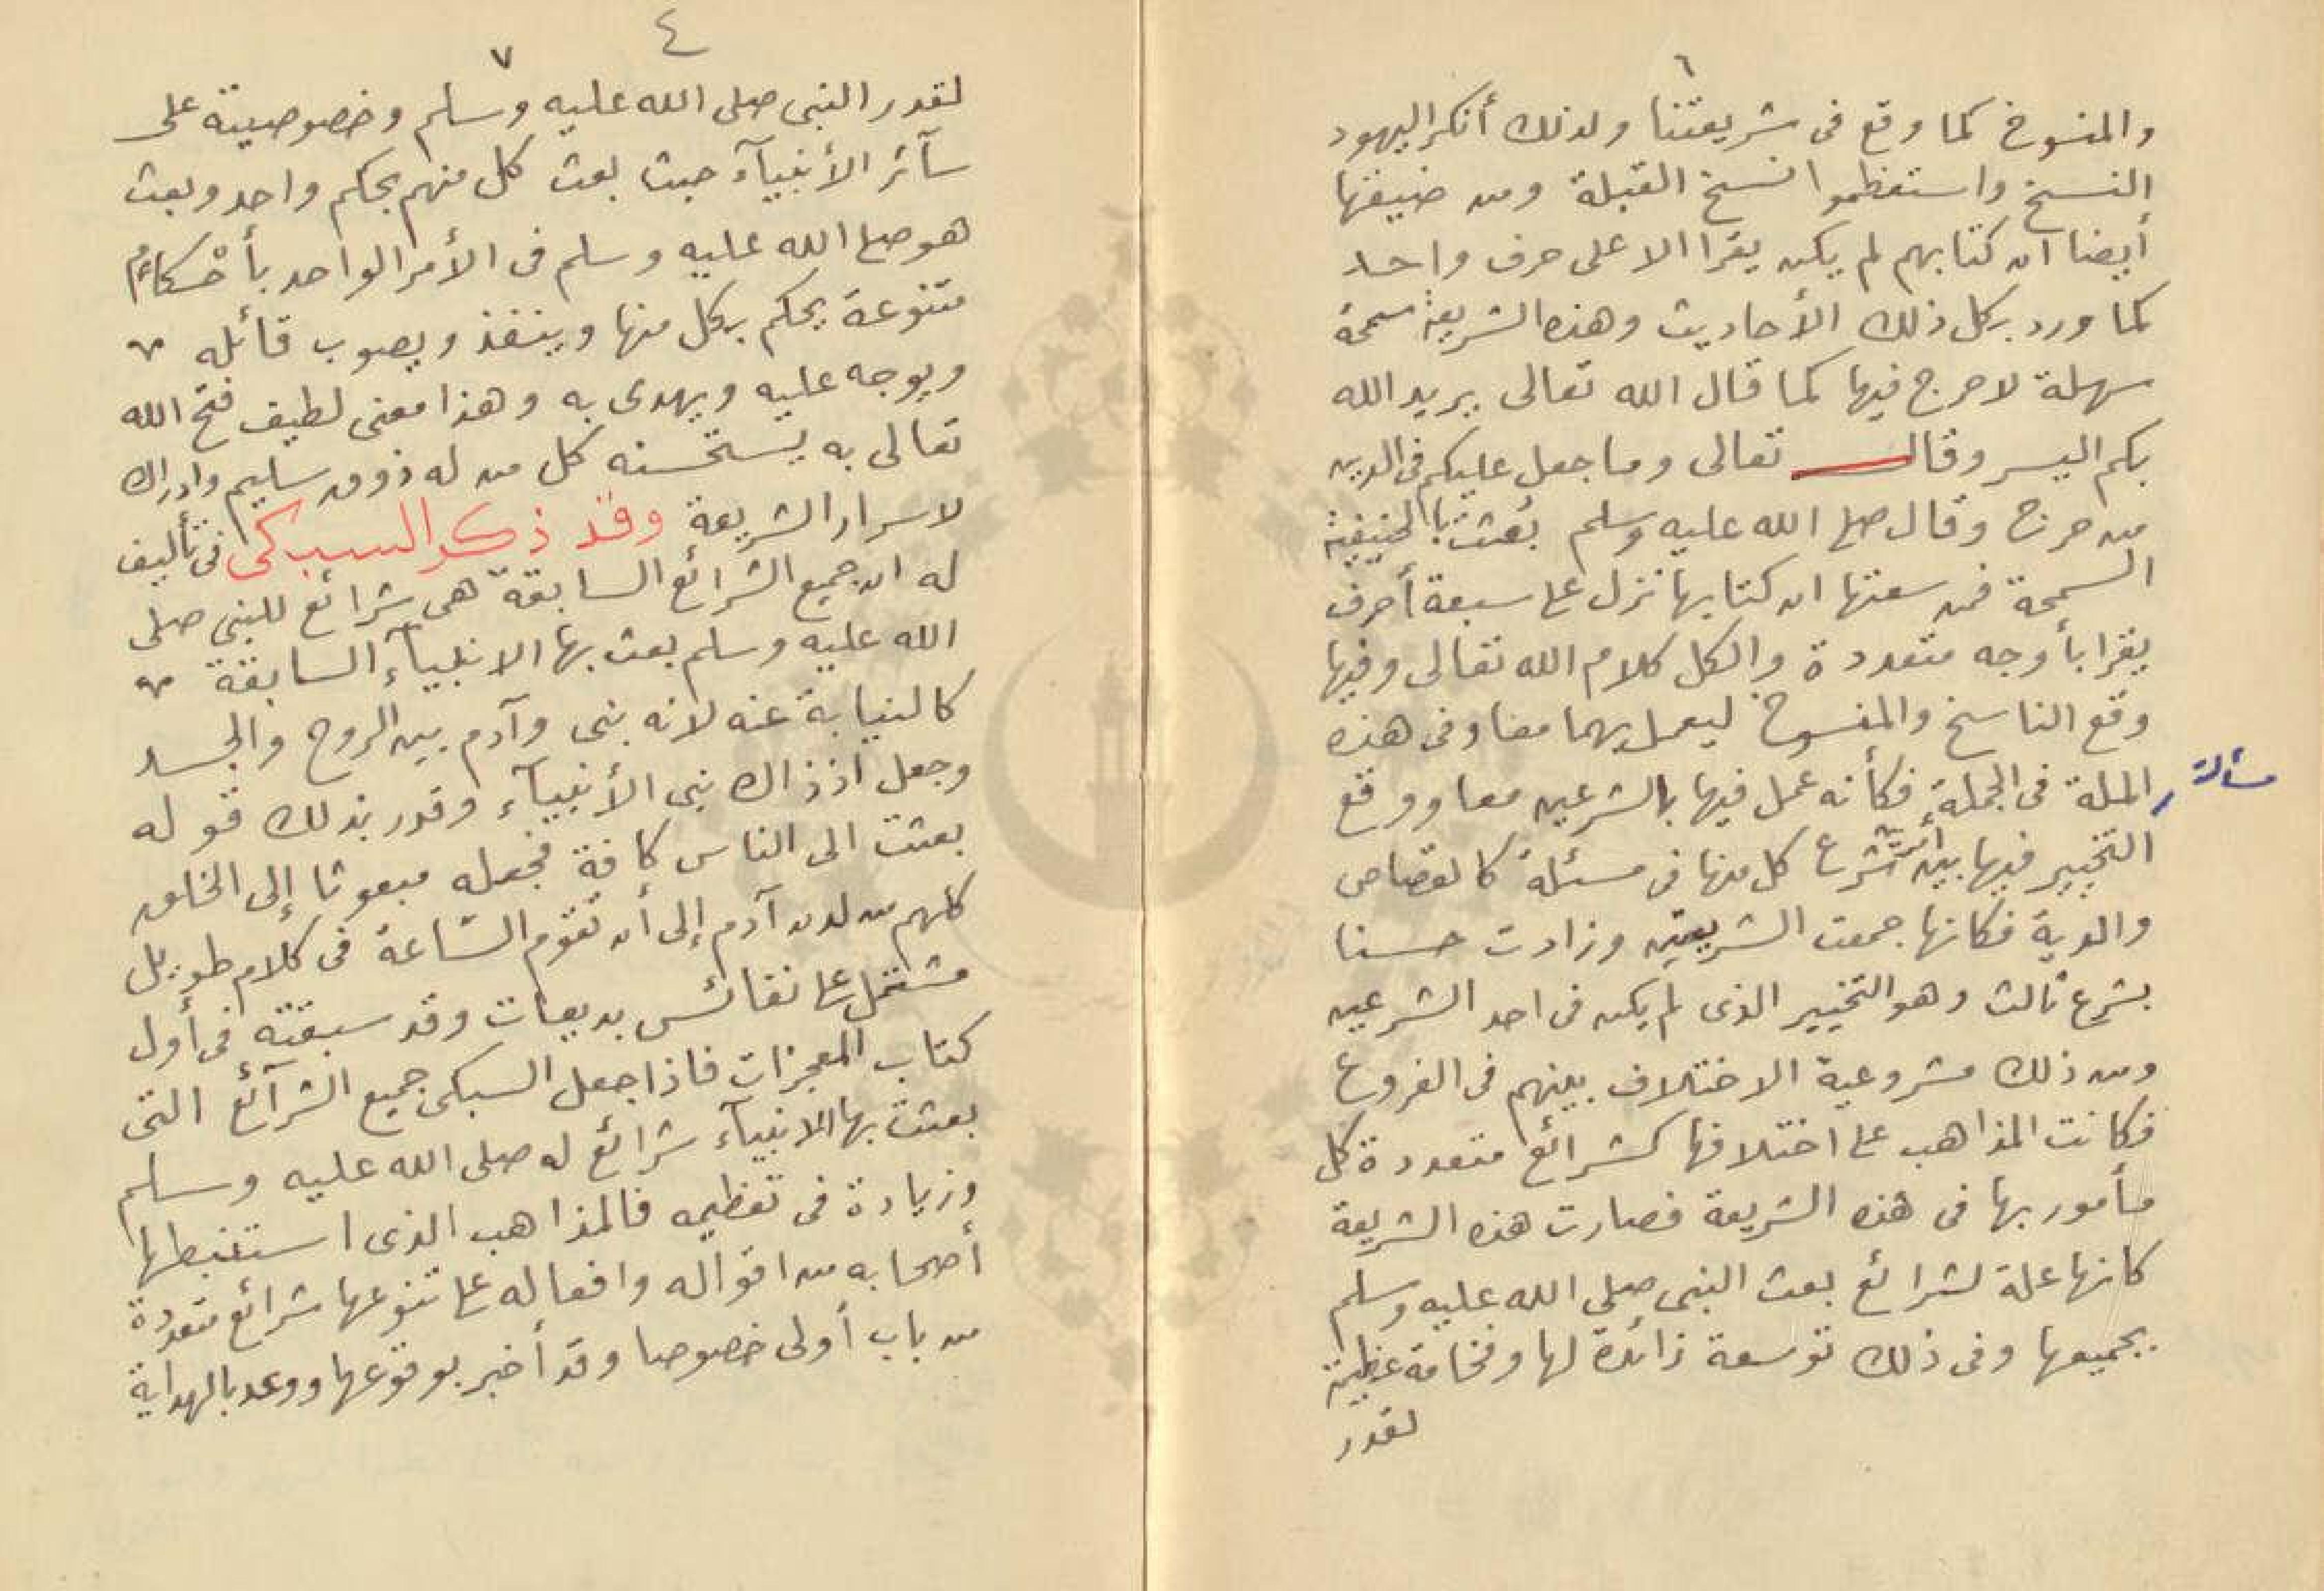 ٦
والمنسوخ كما وقع فى شريعتنا ولذلك أنكر اليهود
النسخ واستعظموا نسخ القبلة ومن ضيقها
أيضا ان كتابهم لم يكن يقرا الا على حرف واحد
كما ورد بكل ذلك الأحاديث وهذه الشريعة سمحة
سهلة لا حرج فيها كما قال الله تعالى يريد الله
بكم اليسر وقال تعالى وما جعل عليكم فى الدين
من حرج وقال صلى الله عليه وسلم بُعثت بالحنيفية
السمحة فمن سعتها ان كتابها نزل على سبعة أحرف
يقرا بأوجه متعددة والكل كلام الله تعالى وفيها
وقع الناسخ والمنسوخ ليعمل بهما معا وفى هذه
مسألة
الملة فى الجملة فكأنه عمل فيها بالشرعين معا ووقع
التخيير فيها بين أمرين شرع كل منها فى مسئلة كالقصاص
والدية فكانها جمعت الشريعتين وزادت حسنا
بشرع ثالث وهو التخيير الذى لم يكن فى احد الشرعين
ومن ذلك مشروعية الاختلاف بينهم فى الفروع
فكانت المذاهب على اختلافها كشرائع متعددة كل
مأمور بها فى هذه الشريعة فصارت هذه الشريعة
كانها علة لشرائع بعث النبى صلى الله عليه وسلم
بجميعها وفى ذلك توسعة زائدة لها وفخامة عظيمة
لقدر
٤
٧
لقدر النبى صلى الله عليه وسلم وخصوصيته على
سآئر الأنبيآء حيث بعث كل منهم بحكم واحد وبعث
هو صلى الله عليه وسلم فى الأمر الواحد بأحْكامٍ
متنوعة يحكم بكل منها وينفذ ويصوب قائله
ويوجه عليه ويهدى به وهذا معنى لطيف فتح الله
تعالى به يستحسنه كل من له ذوق سليم وادراك
لاسرار الشريعة وقد ذكر السبكى فى تأليف
له ان جميع الشرائع السابقة هى شرائع للنبى صلى
الله عليه وسلم بعث بها الانبيآء السابقة
كالنيابة عنه لانه نبى وآدم بين الروح والجسد
وجعل اذ ذاك نبى الأنبيآء وقدر بذلك قوله
بعثت الى الناس كافة فجعله مبعوثا إلى الخلق
كلهم من لدن آدم إلى أن تقوم السّاعة فى كلام طويل
مشتمل على نفائس بديعات وقد سبقته فى أول
كتاب المعجزات فاذا جعل السبكى جميع الشرآئع التى
بعثت بها الانبيآء شرائع له صلى الله عليه وسلم
وزيادة فى تعظيمه فالمذاهب الذى استنبطها
أصحابه من اقواله وافعاله على تنوعها شرائع متعددة
من باب أولى خصوصا وقد أخبر بوقوعها ووعد بالهداية